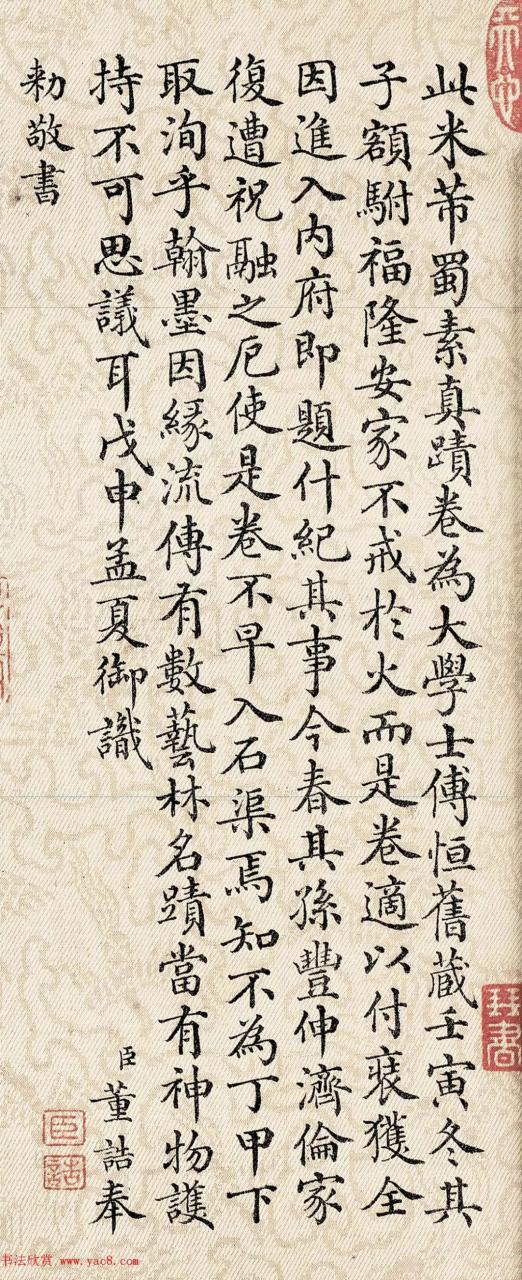 此米芾蜀素真蹟卷為大學士傅恒舊藏壬寅冬其
子額駙福隆安家不戒於火而是卷適以付裱獲全
因進入內府即題什紀其事今春其孫豐伸濟倫家
復遭祝融之厄使是卷不早入石渠焉知不為丁甲下
取洵乎翰墨因緣流傳有數藝林名蹟當有神物護
持不可思議耳戊申孟夏御識
臣董誥奉
勅敬書
臣
誥
书法欣赏 www.yac8.com